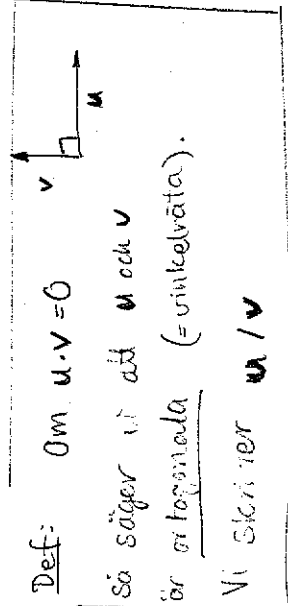 Def: Om u·v=0
v
u
så säger vi att u och v
är ortogonala (=vinkelräta).
Vi skriver u / v